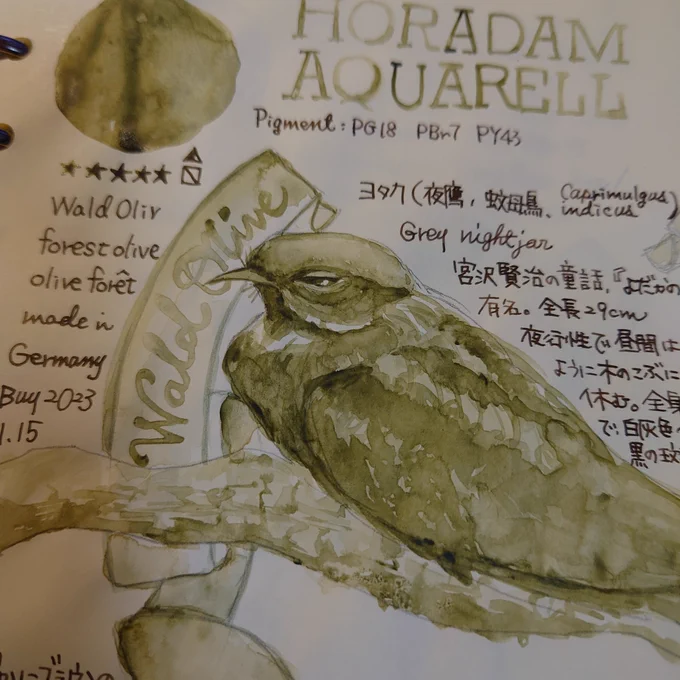 HORADAM
AQUARELL
Pigment : PG18 PBr7 PY43
★★★★★
Wald Oliv
forest olive
olive forêt
made in
Germany
Buy 2023
1.15
Wald Olive
ヨタカ (夜鷹, 蚊母鳥、Caprimulgus indicus)
Grey nightjar
宮沢賢治の童話,『よだかの
有名。全長29cm
夜行性で昼間は
ように木のこぶに
休む。全身
で、白灰色
黒の